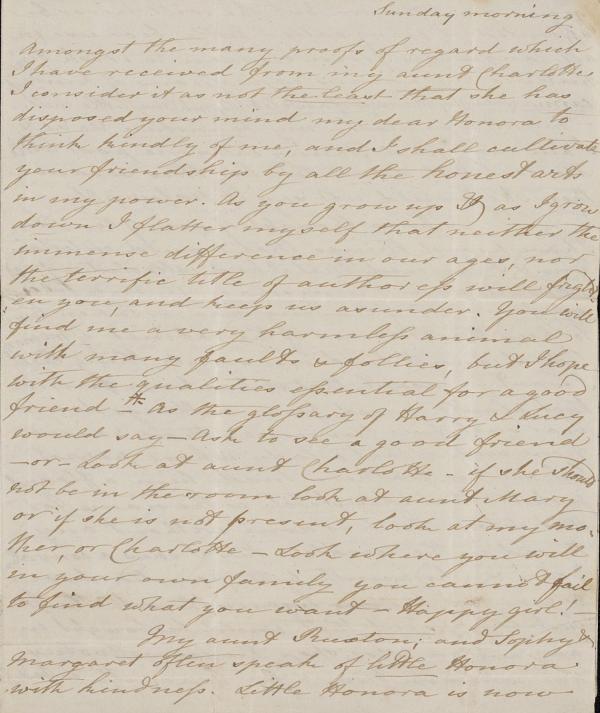 Sunday morning
Amongst the many proofs of regard which
I have received from my aunt Charlotte
I consider it as not the least that she has
disposed your mind my dear Honora to
think kindly of me, and I shall cultivate
your friendship by all the honest arts
in my power. As you grow up & as I grow
down I flatter myself that neither the
immense difference in our ages, nor
the terrific title of authoress will fright
en you, and keep us asunder. You will
find me a very harmless animal
with many faults & follies, but I hope
with the qualities essential for a good
friend # As the glossary of Harry & Lucy
would say — Ask to see a good friend
— or — Look at aunt Charlotte — if she should
not be in the room look at aunt Mary
or if she is not present, look at my mo-
ther, or Charlotte — Look where you will
in your own family you cannot fail
to find what you want — Happy girl! —
My aunt Ruxton, and Sophy &
Margaret often speak of little Honora
with kindness. Little Honora is now